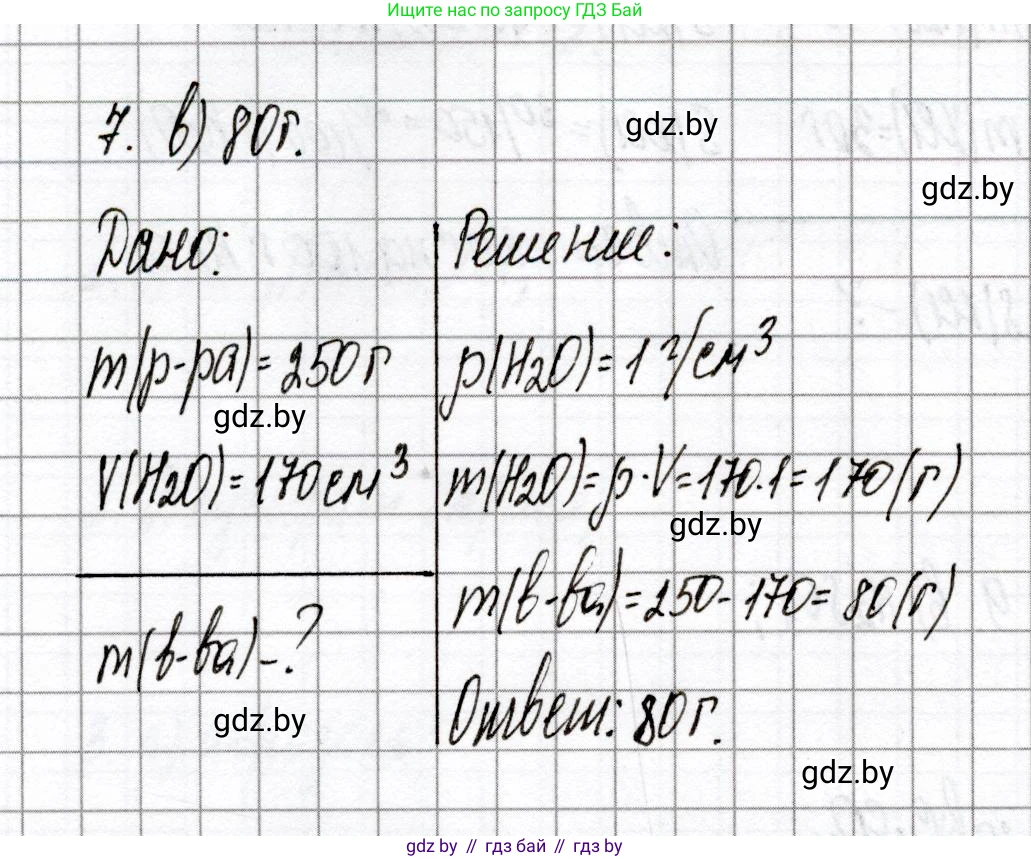 Ищите нас по запросу ГДЗ Бай
7. в) 80г.
gdz.by
gdz.by
Дано:
m(р-ра) = 250 г
gdz.by
V(H2O) = 170 см³
m(в-ва) - ?
gdz.by
Решение:
ρ(H2O) = 1 г/см³
m(H2O) = ρ · V = 170 · 1 = 170 (г)
gdz.by
m(в-ва) = 250 - 170 = 80 (г)
Ответ: 80 г.
gdz.by
gdz.by // гдз бай // гдз by